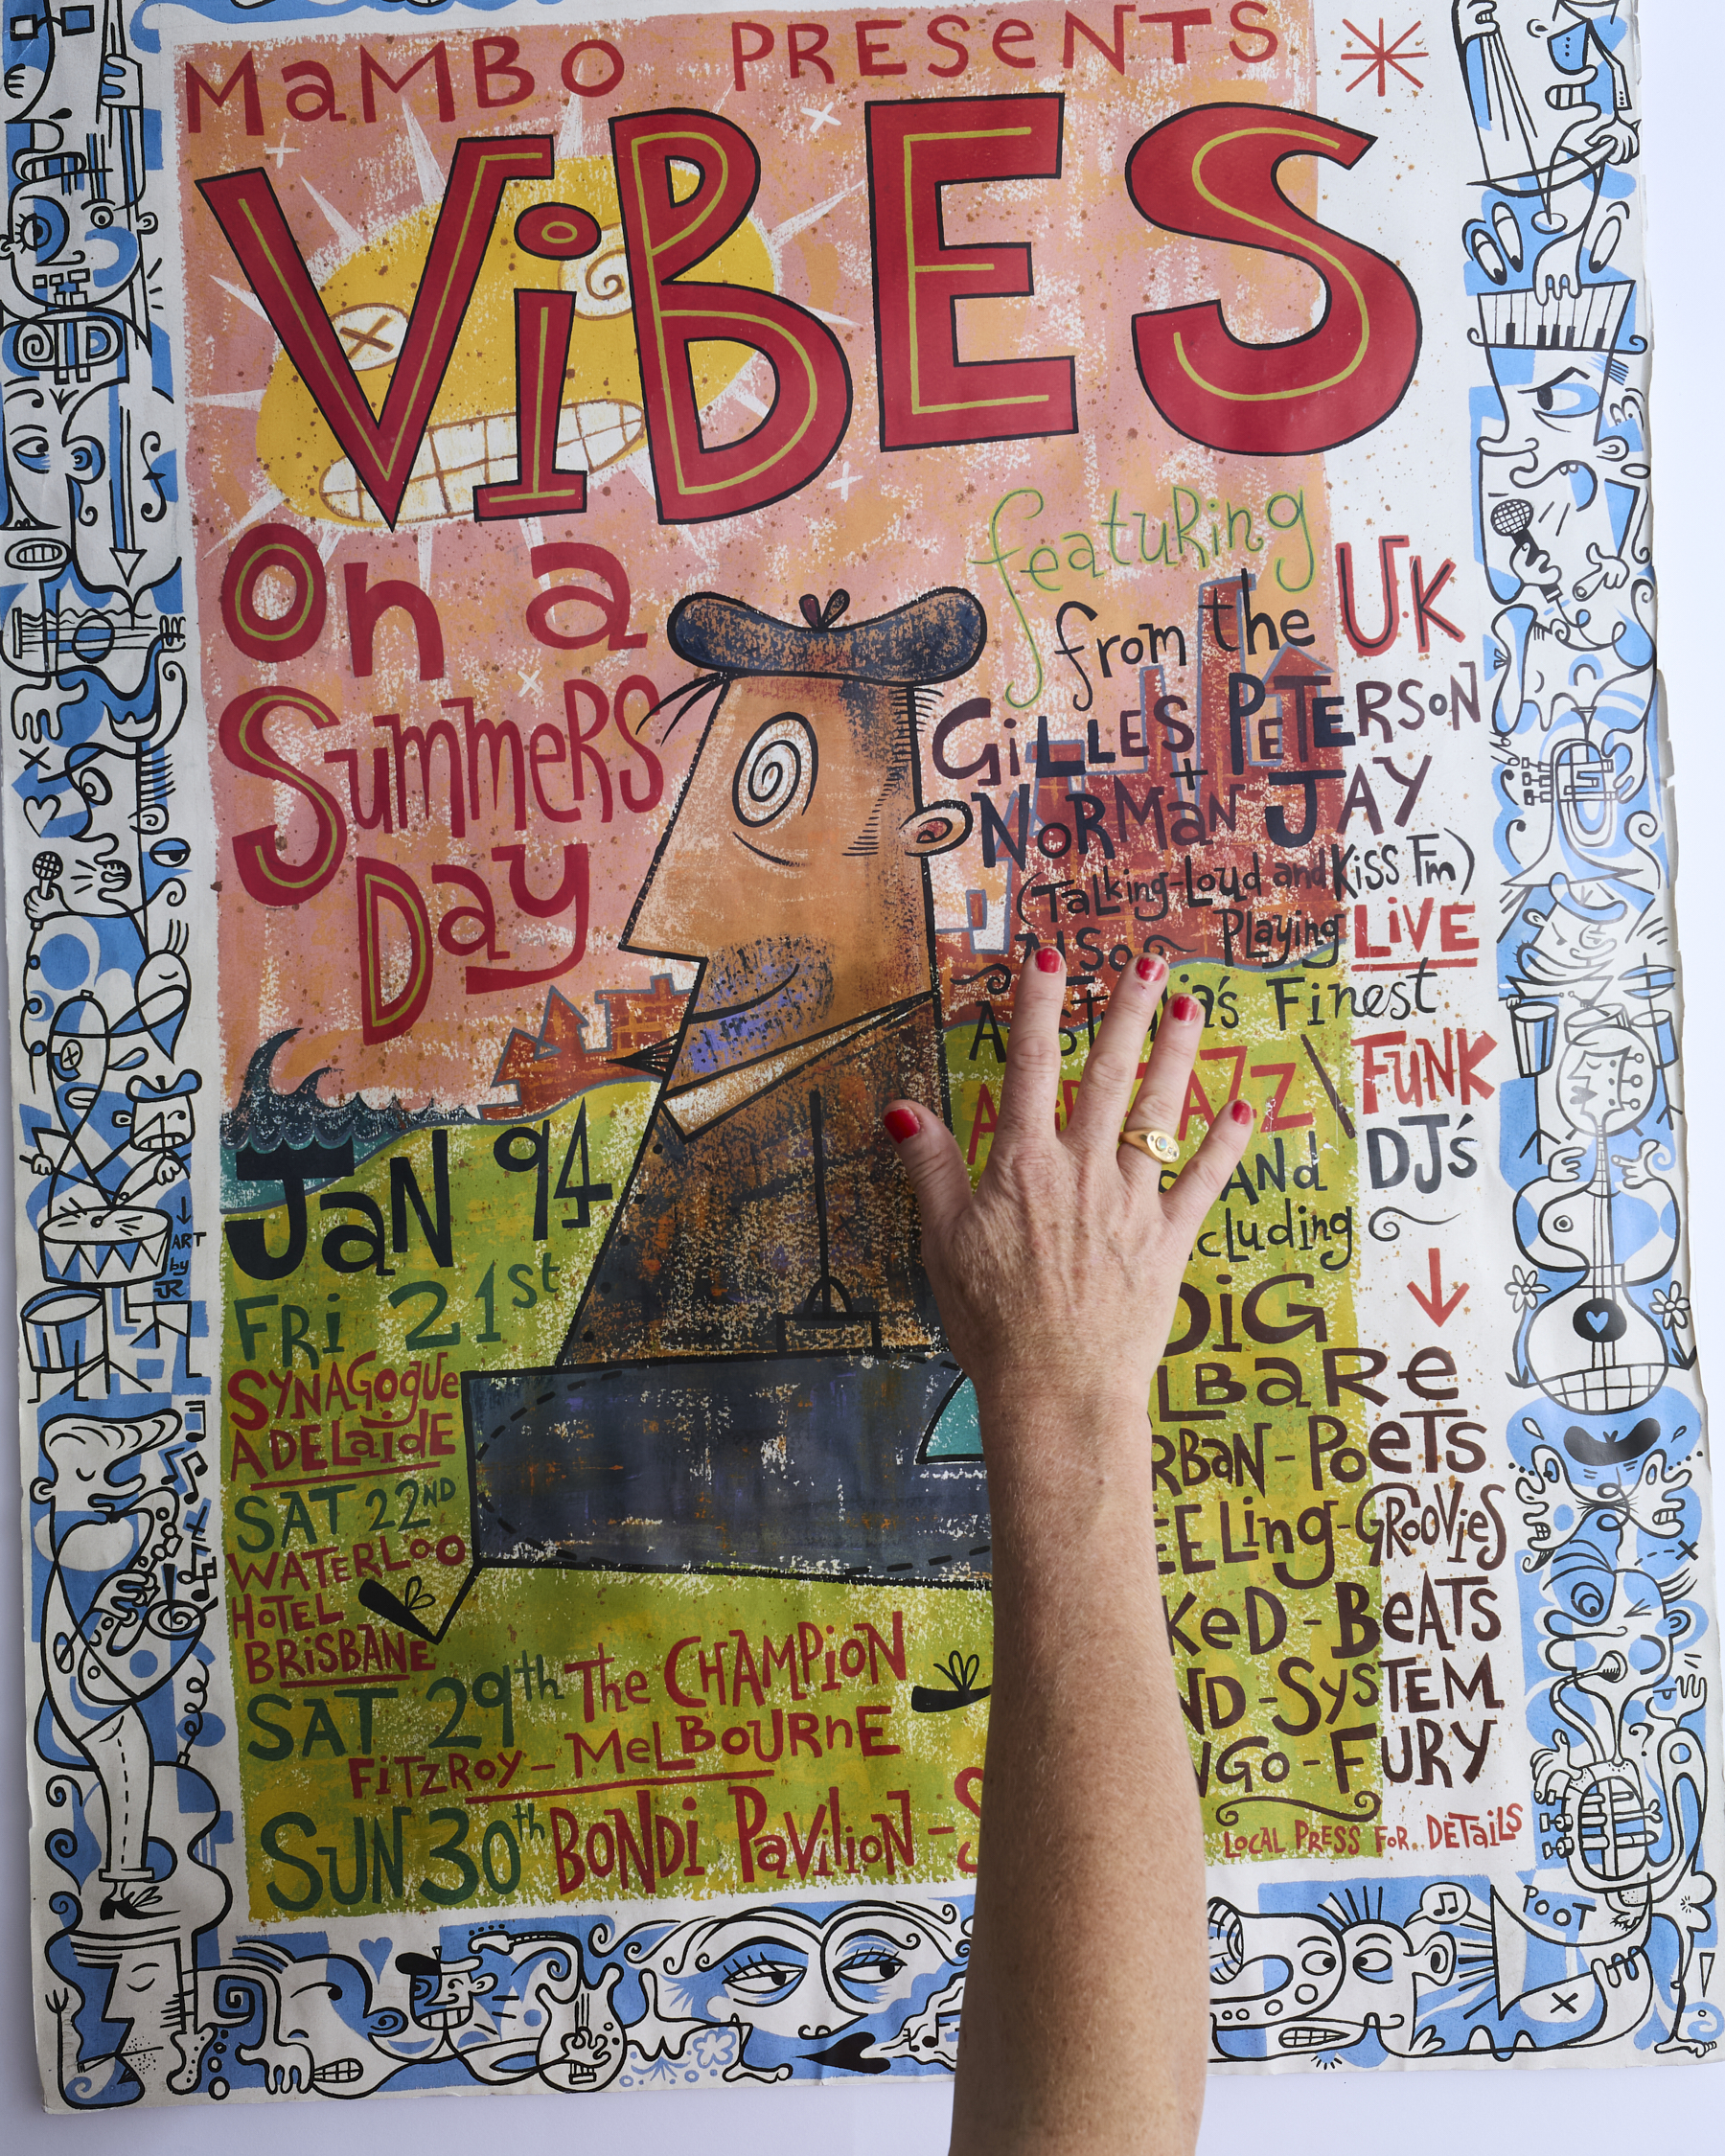 MaMBO PRESeNTS
ViBES
on a
SummeRS
Day
featuRing
from the U.K
GiLLES PETERSON
+
NORMaN JAY
(TaLking-Loud and Kiss Fm)
ALSO Playing LiVE
's Finest
FUNK
DJ's
ANd
DiG
BaRe
PoeTS
EELing-GROOVieS
KeD-BeATS
ND-SysTEM
GO-FURY
LOCAL PRESS FOR.. DETaiLS
JaN 94
FRi 21st
SYNAGogUe
ADELaidE
SAT 22ND
WATERLOO
HOTEL
BRiSBANE
SAT 29th The CHAMPiON
FiTZROY-MeLBOURnE
SUN 30th BONDi PaViLiON-
ART
by
JR
POOT